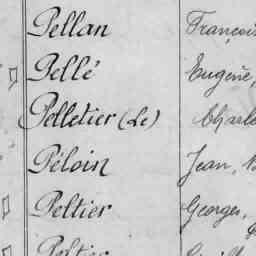 Pellan François
Pellé Eugène,
Pelletier (Le) Charle
Péloin Jean,
Peltier Georges,
Peltier